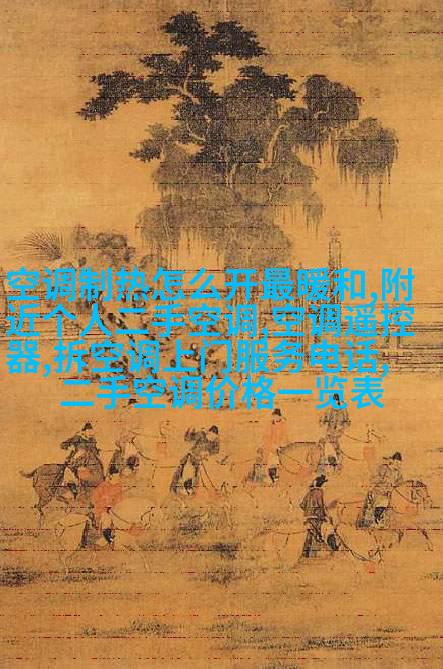 空调制热怎么开最暖和,附
近个人二手空调,空调遥控
器,拆空调上门服务电话,
二手空调价格一览表